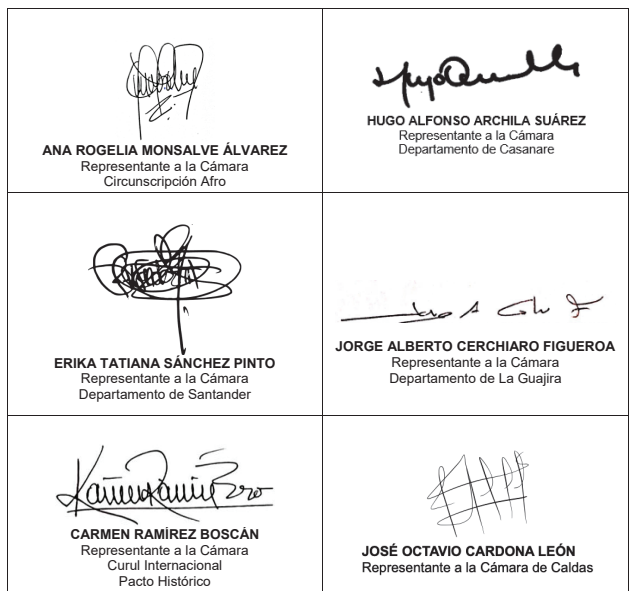 ANA ROGELIA MONSALVE ÁLVAREZ
Representante a la Cámara
Circunscripción Afro
HUGO ALFONSO ARCHILA SUÁREZ
Representante a la Cámara
Departamento de Casanare
ERIKA TATIANA SÁNCHEZ PINTO
Representante a la Cámara
Departamento de Santander
JORGE ALBERTO CERCHIARO FIGUEROA
Representante a la Cámara
Departamento de La Guajira
CARMEN RAMÍREZ BOSCÁN
Representante a la Cámara
Curul Internacional
Pacto Histórico
JOSÉ OCTAVIO CARDONA LEÓN
Representante a la Cámara de Caldas